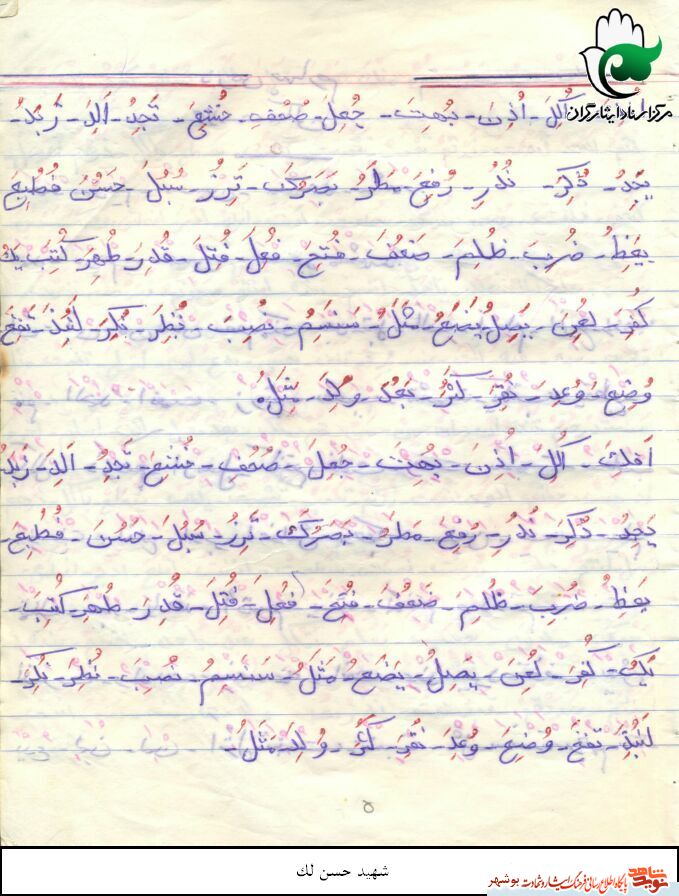 مرکز اسناد ایثارگران
اُکُلَ - اُذِنَ - بُهِتَ - جُعِلَ - صُحُفِ - خُشِعَ - تَجِدُ - اَلِدَ - تَرِدُ -
یَجِدُ - ذُکِرَ - نُذُرِ - رُفِعَ - مَطَرُ - بَصَرُکَ - تَزِرُ - سُبُلَ - حَسُنَ - فَطُبِعَ
یَعِظُ - ضُرِبَ - ظُلِمَ - ضَعُفَ - فُتِحَ - فُعِلَ - قُتِلَ - قُدِرَ - طُهِرَ - کُتِبَ - یَکُ
کُفِرَ - لُعِنَ - یَصِلُ - یَضَعُ - مَثَلُ - سَنَسِمُ - نُصِبَ - نُظِرَ - نُکِرَ - لَنُبِذَ - نَفَخَ
وُضِعَ - وُعِدَ - نُقِرَ - کَثُرَ - بَعُدَ - وُلِدَ - مَثَلُ .
اَفَلِکَ - اُکُلَ - اُذِنَ - بُهِتَ - جُعِلَ - صُحُفِ - خُشِعَ - تَجِدُ - اَلِدَ - تَرِدُ
یَجِدُ - ذُکِرَ - نُذُرِ - رُفِعَ - مَطَرُ - بَصَرُکَ - تَزِرُ - سُبُلَ - حَسُنَ - فَطُبِعَ -
یَعِظُ - ضُرِبَ - ظُلِمَ - ضَعُفَ - فُتِحَ - فُعِلَ - قُتِلَ - قُدِرَ - طُهِرَ - کُتِبَ -
یَکُ - کُفِرَ - لُعِنَ - یَصِلُ - یَضَعُ - مَثَلُ - سَنَسِمُ - نُصِبَ - نُظِرَ - نُکِرَ -
لَنُبِذَ - نَفَخَ - وُضِعَ - وُعِدَ - نُقِرَ - کَثُرَ - وُلِدَ - مَثَلُ -
۵
شهید حسن لك
نوید شاهد پایگاه اطلاع رسانی فرهنگ ایثار و شهادت بوشهر